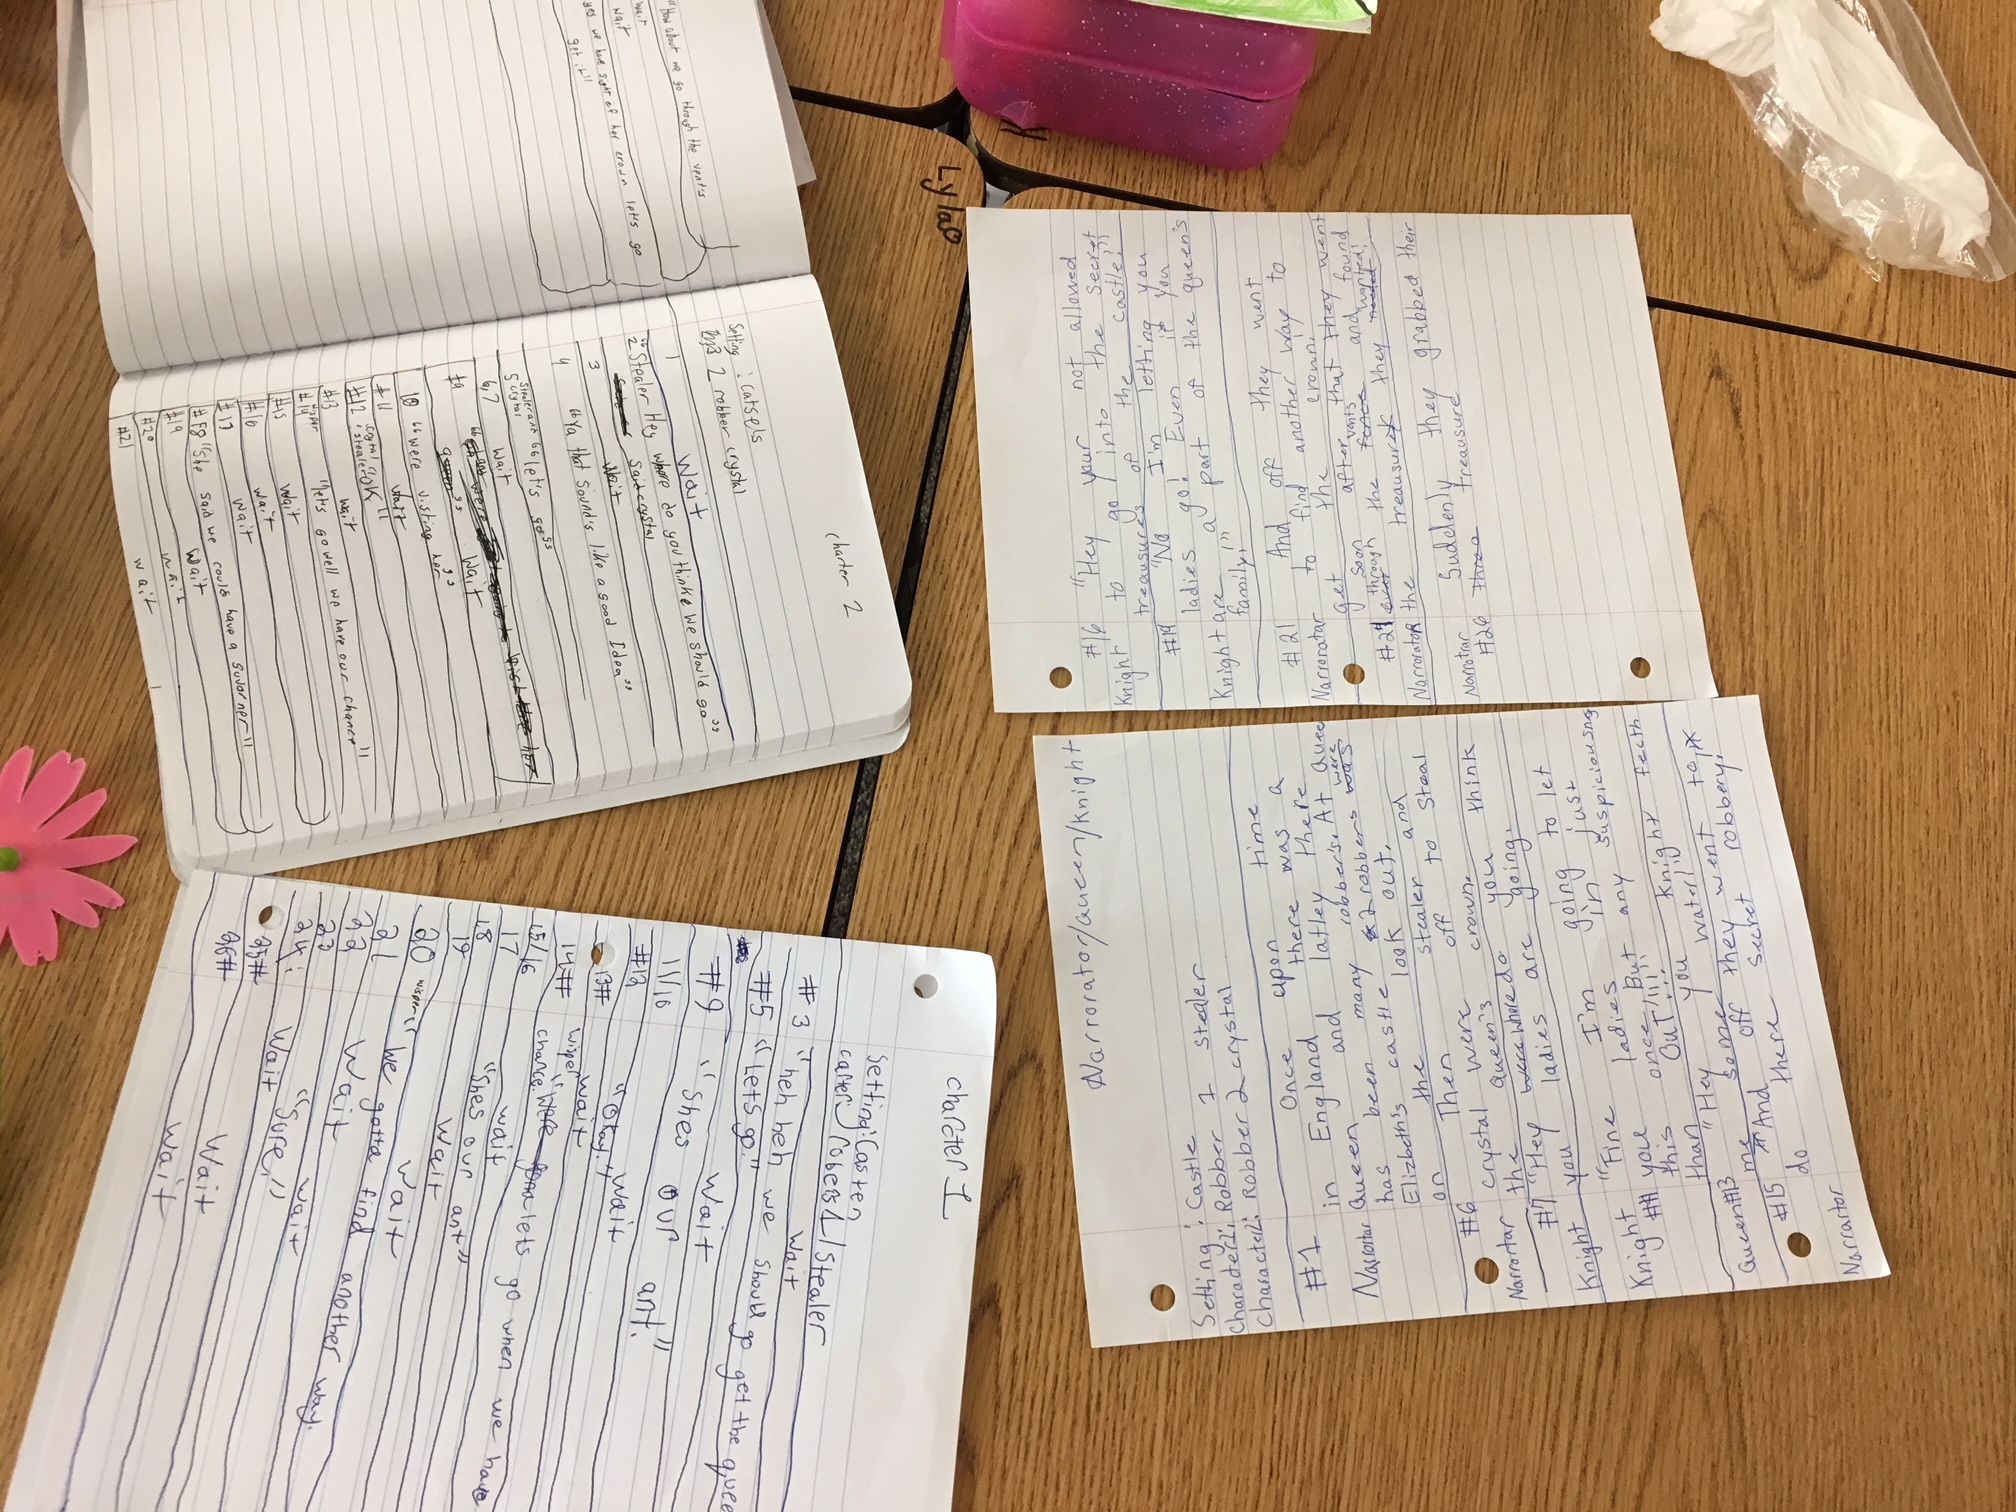 "How about we go through the vents
wait
wait
yes we have sight of her crown let's go
get it"
Chapter 2
Setting : catsels
2 robber crystal
1 Wait
2 "Stealer Hey where do you think we should go"
said crystal
3 Wait
4 "Ya that sounds like a good Idea"
Stealer and "let's go"
5 crystal
6,7 Wait
#9 Wait
10 "were visting her"
#11 Wait
#12 crystal "OK"
: stealer
#13 wait
#14 "let's go well we have our chance"
wisper
#15 wait
#16 wait
#17 wait
#18 "She said we could have a governer"
#19 Wait
#20 wait
#21 wait
Lylao
#16 "Hey your not allowed
Knight to go into the Secret
treasures of the castle!"
#19 "No I'm letting you
ladies go! Even if you
Knight are a part of the queen's
family!"
#21 And off they went
Narrorator to find another way to
get the crown.
soon after that they went
#24 through the vents and found
Narrorator the treasure they wanted!
Narrotrar Suddenly they grabbed their
#26 three treausure
Narrorator/Queen/Knight
Setting: Castle
Character1: Robber 1 stealer
Character2: Robbber 2 crystal
#1 Once upon time
in England there was a
Narrortar Queen and latley there
has been many robbers. At Quee
Elizbeth's castle 2 robbers were
the look out, and
on stealer to Steal
#6 Then off
crystal were crown.
Narrortar the queen's you think
were where do
#7 "Hey ladies are going.
Knight you going to let
"Fine I'm in just
Knight you ladies But any suspiciousng
## this once!!!!! Knight fecth
than OUT!!!
"Hey you water!"
Queen#13 me some they went to,*
#15 *And off secret robbery,
do there
Narrartor
chapter 1
Setting: Casten
carter: robers 1/stealer
Wait
#3 "heh heh we should go get the quee
#5 "Lets go."
Wait
#9 "Shes our art."
11/10 Wait
#12 "Okay."
13# wait
14## wisper "lets go when we have
chance.
15/16 wait
17 "Shes our art"
18 Wait
19 Wait
20 wisper "we gotta find another way.
21 Wait
22 wait
23 "Sure"
24: Wait
25# Wait
26# Wait